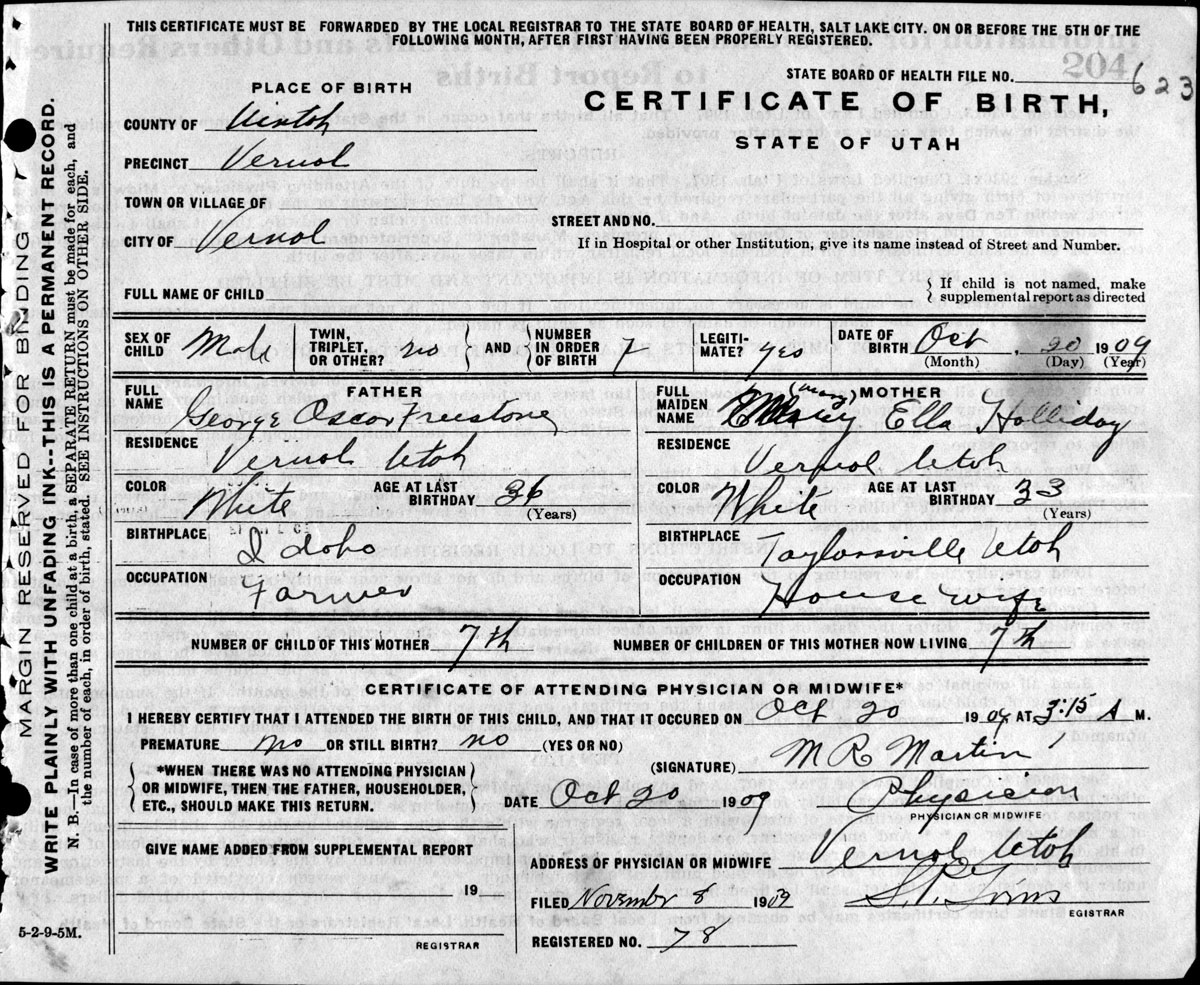 THIS CERTIFICATE MUST BE FORWARDED BY THE LOCAL REGISTRAR TO THE STATE BOARD OF HEALTH, SALT LAKE CITY. ON OR BEFORE THE 5TH OF THE
FOLLOWING MONTH, AFTER FIRST HAVING BEEN PROPERLY REGISTERED.
STATE BOARD OF HEALTH FILE NO. 623
204
PLACE OF BIRTH
CERTIFICATE OF BIRTH,
STATE OF UTAH
COUNTY OF Uintah
PRECINCT Vernal
TOWN OR VILLAGE OF
STREET AND NO.
CITY OF Vernal
If in Hospital or other Institution, give its name instead of Street and Number.
FULL NAME OF CHILD
If child is not named, make
supplemental report as directed
SEX OF CHILD Male
TWIN, TRIPLET, OR OTHER? no
AND
NUMBER IN ORDER OF BIRTH
LEGITI- MATE? yes
DATE OF BIRTH Oct 20 1909
(Month) (Day) (Year)
FATHER
FULL NAME George Oscar Freestone
RESIDENCE Vernal Utah
COLOR White
AGE AT LAST BIRTHDAY 36
(Years)
BIRTHPLACE Idaho
OCCUPATION Farmer
MOTHER
FULL MAIDEN NAME (Mary) Ella Holliday
RESIDENCE Vernal Utah
COLOR White
AGE AT LAST BIRTHDAY 33
(Years)
BIRTHPLACE Taylorsville Utah
OCCUPATION House wife
NUMBER OF CHILD OF THIS MOTHER 7th
NUMBER OF CHILDREN OF THIS MOTHER NOW LIVING 7th
CERTIFICATE OF ATTENDING PHYSICIAN OR MIDWIFE*
I HEREBY CERTIFY THAT I ATTENDED THE BIRTH OF THIS CHILD, AND THAT IT OCCURED ON Oct 20 1909 AT :15 A M.
PREMATURE no OR STILL BIRTH? no (YES OR NO)
(SIGNATURE) M R Martin
*WHEN THERE WAS NO ATTENDING PHYSICIAN
OR MIDWIFE, THEN THE FATHER, HOUSEHOLDER,
ETC., SHOULD MAKE THIS RETURN.
DATE Oct 20 1909
Physician
PHYSICIAN OR MIDWIFE
GIVE NAME ADDED FROM SUPPLEMENTAL REPORT
19
REGISTRAR
ADDRESS OF PHYSICIAN OR MIDWIFE Vernal Utah
FILED November 8 1909
REGISTRAR
REGISTERED NO. 78
5-2-9-5M.
MARGIN RESERVED FOR BINDING
WRITE PLAINLY WITH UNFADING INK--THIS IS A PERMANENT RECORD.
N. B.—In case of more than one child at a birth, a SEPARATE RETURN must be made for each, and
the number of each, in order of birth, stated. SEE INSTRUCTIONS ON OTHER SIDE.